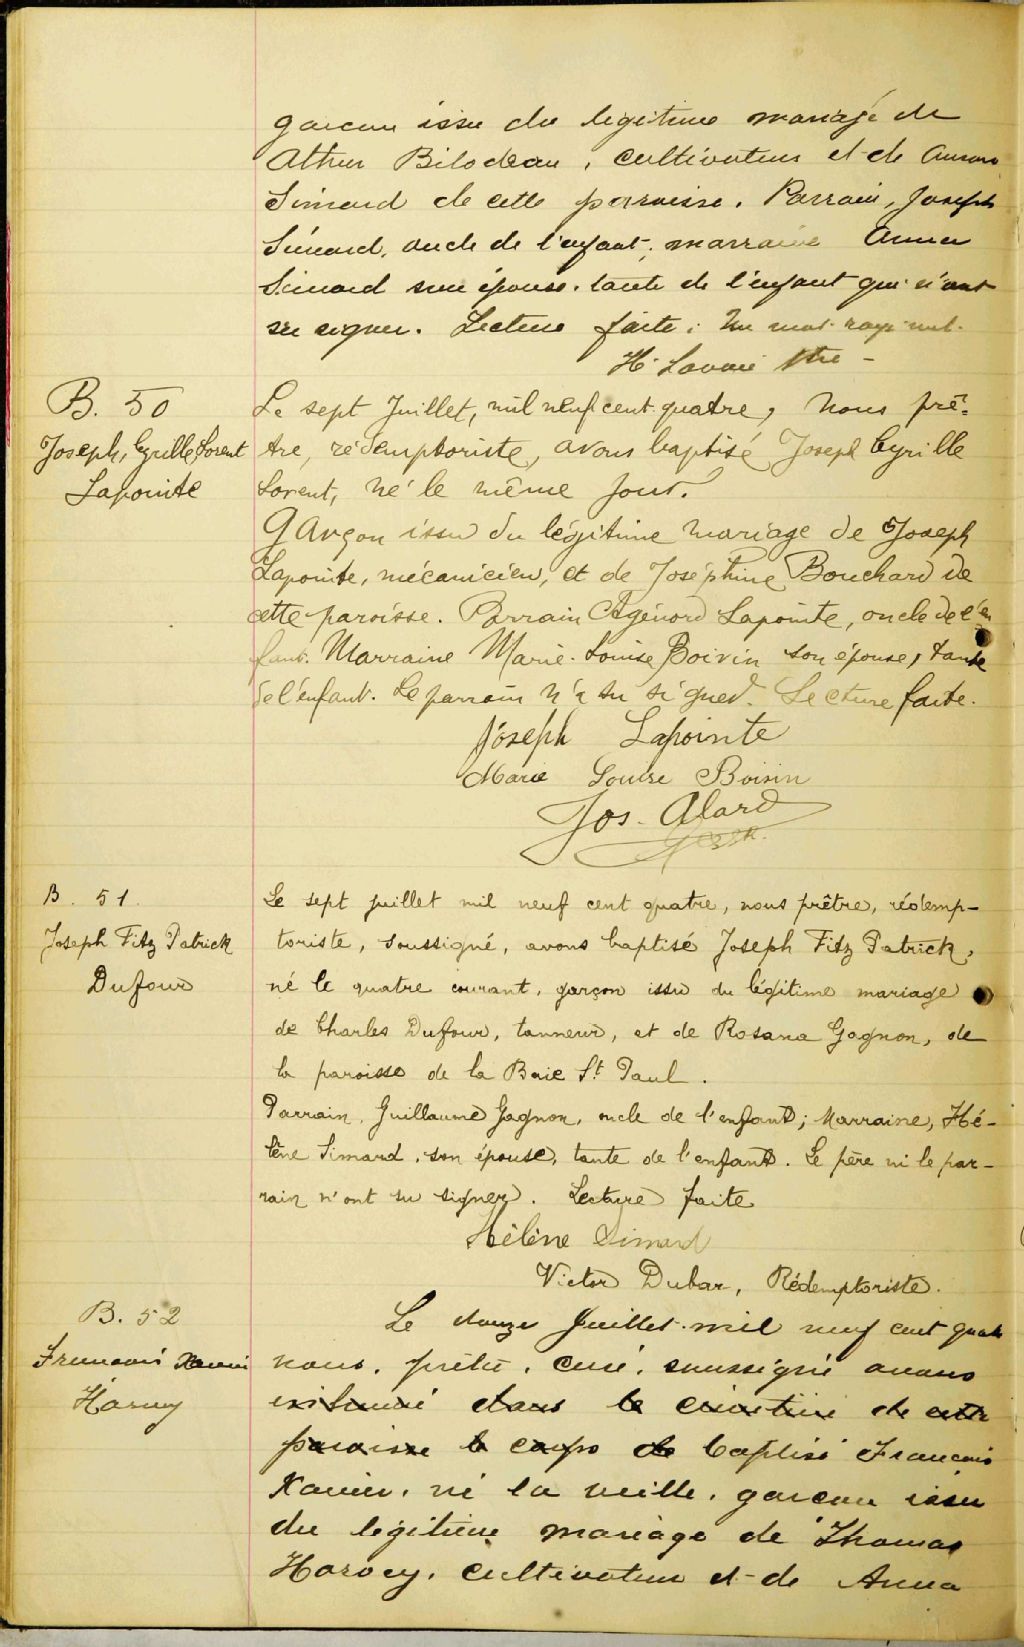 garcon issu du legitime mariage de
Athur Bilodeau, cultivateur et de Aurore
Simard de cette parroisse. Parrain, Joseph
Simard, oncle de l'enfant; marraine Anna
Simard son épouse. tante de l'enfant qui n'ont
su signer. Lecture faite. Un mot rayé nul.
H. Lavoie Ptre -
B. 50
Joseph, Cyrille, Lorent
Lapointe
Le sept Juillet, mil neuf cent quatre, nous prê-
tre, rédemptoriste, avons baptisé Joseph Cyrille
Lorent, né le même jour.
Garçon issu du légitime mariage de Joseph
Lapointe, mécanicien, et de Joséphine Bouchard de
cette paroisse. Parrain Agénord Lapointe, oncle de l'en
fant. Marraine Marie-Louise Boivin son épouse, tante
de l'enfant. Le parrain n'a su signer. Lecture faite.
Joseph Lapointe
Marie Louise Boivin
Jos. Alard
B. 51.
Joseph Fitz Patrick
Dufour
Le sept juillet mil neuf cent quatre, nous prêtre, rédemp-
toriste, soussigné, avons baptisé Joseph Fitz Patrick,
né le quatre courant, garçon issu du légitime mariage
de Charles Dufour, tanneur, et de Rosana Gagnon, de
la paroisse de la Baie St Paul.
Parrain, Guillaume Gagnon, oncle de l'enfant; Marraine, Hé-
lène Simard, son épouse, tante de l'enfant. Le père ni le par-
rain n'ont su signer. Lecture faite
Hélène Simard
Victor Dubar, Rédemptoriste.
B. 52
Francois Xavier
Harvey
Le douze Juillet mil neuf cent quatre
nous, prêtre, curé, soussigné avons
inhumé dans le cimetière de cette
paroisse le corps de baptisé Francois
Xavier, né la veille, garcon issu
du legitime mariage de Thomas
Harvey, cultivateur et de Anna